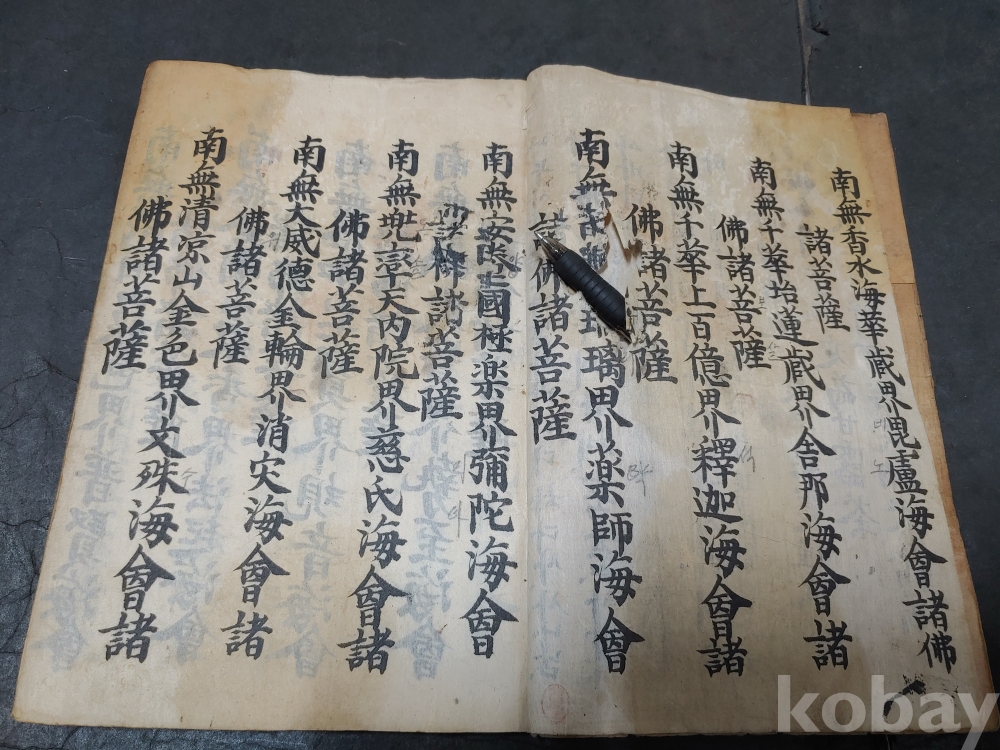 南無香水海華藏界毘盧海會諸佛
諸菩薩
南無千華坮蓮藏界舍那海會諸
佛諸菩薩
南無千華上百億界釋迦海會諸
佛諸菩薩
南無 璃界藥師海會
佛諸菩薩
南無安 國極楽界彌陀海會
菩薩
南無兜率天内院界慈氏海會諸
佛諸菩薩
南無大威德金輪界消灾海會諸
佛諸菩薩
南無清凉山金色界文殊海會諸
佛諸菩薩
kobay